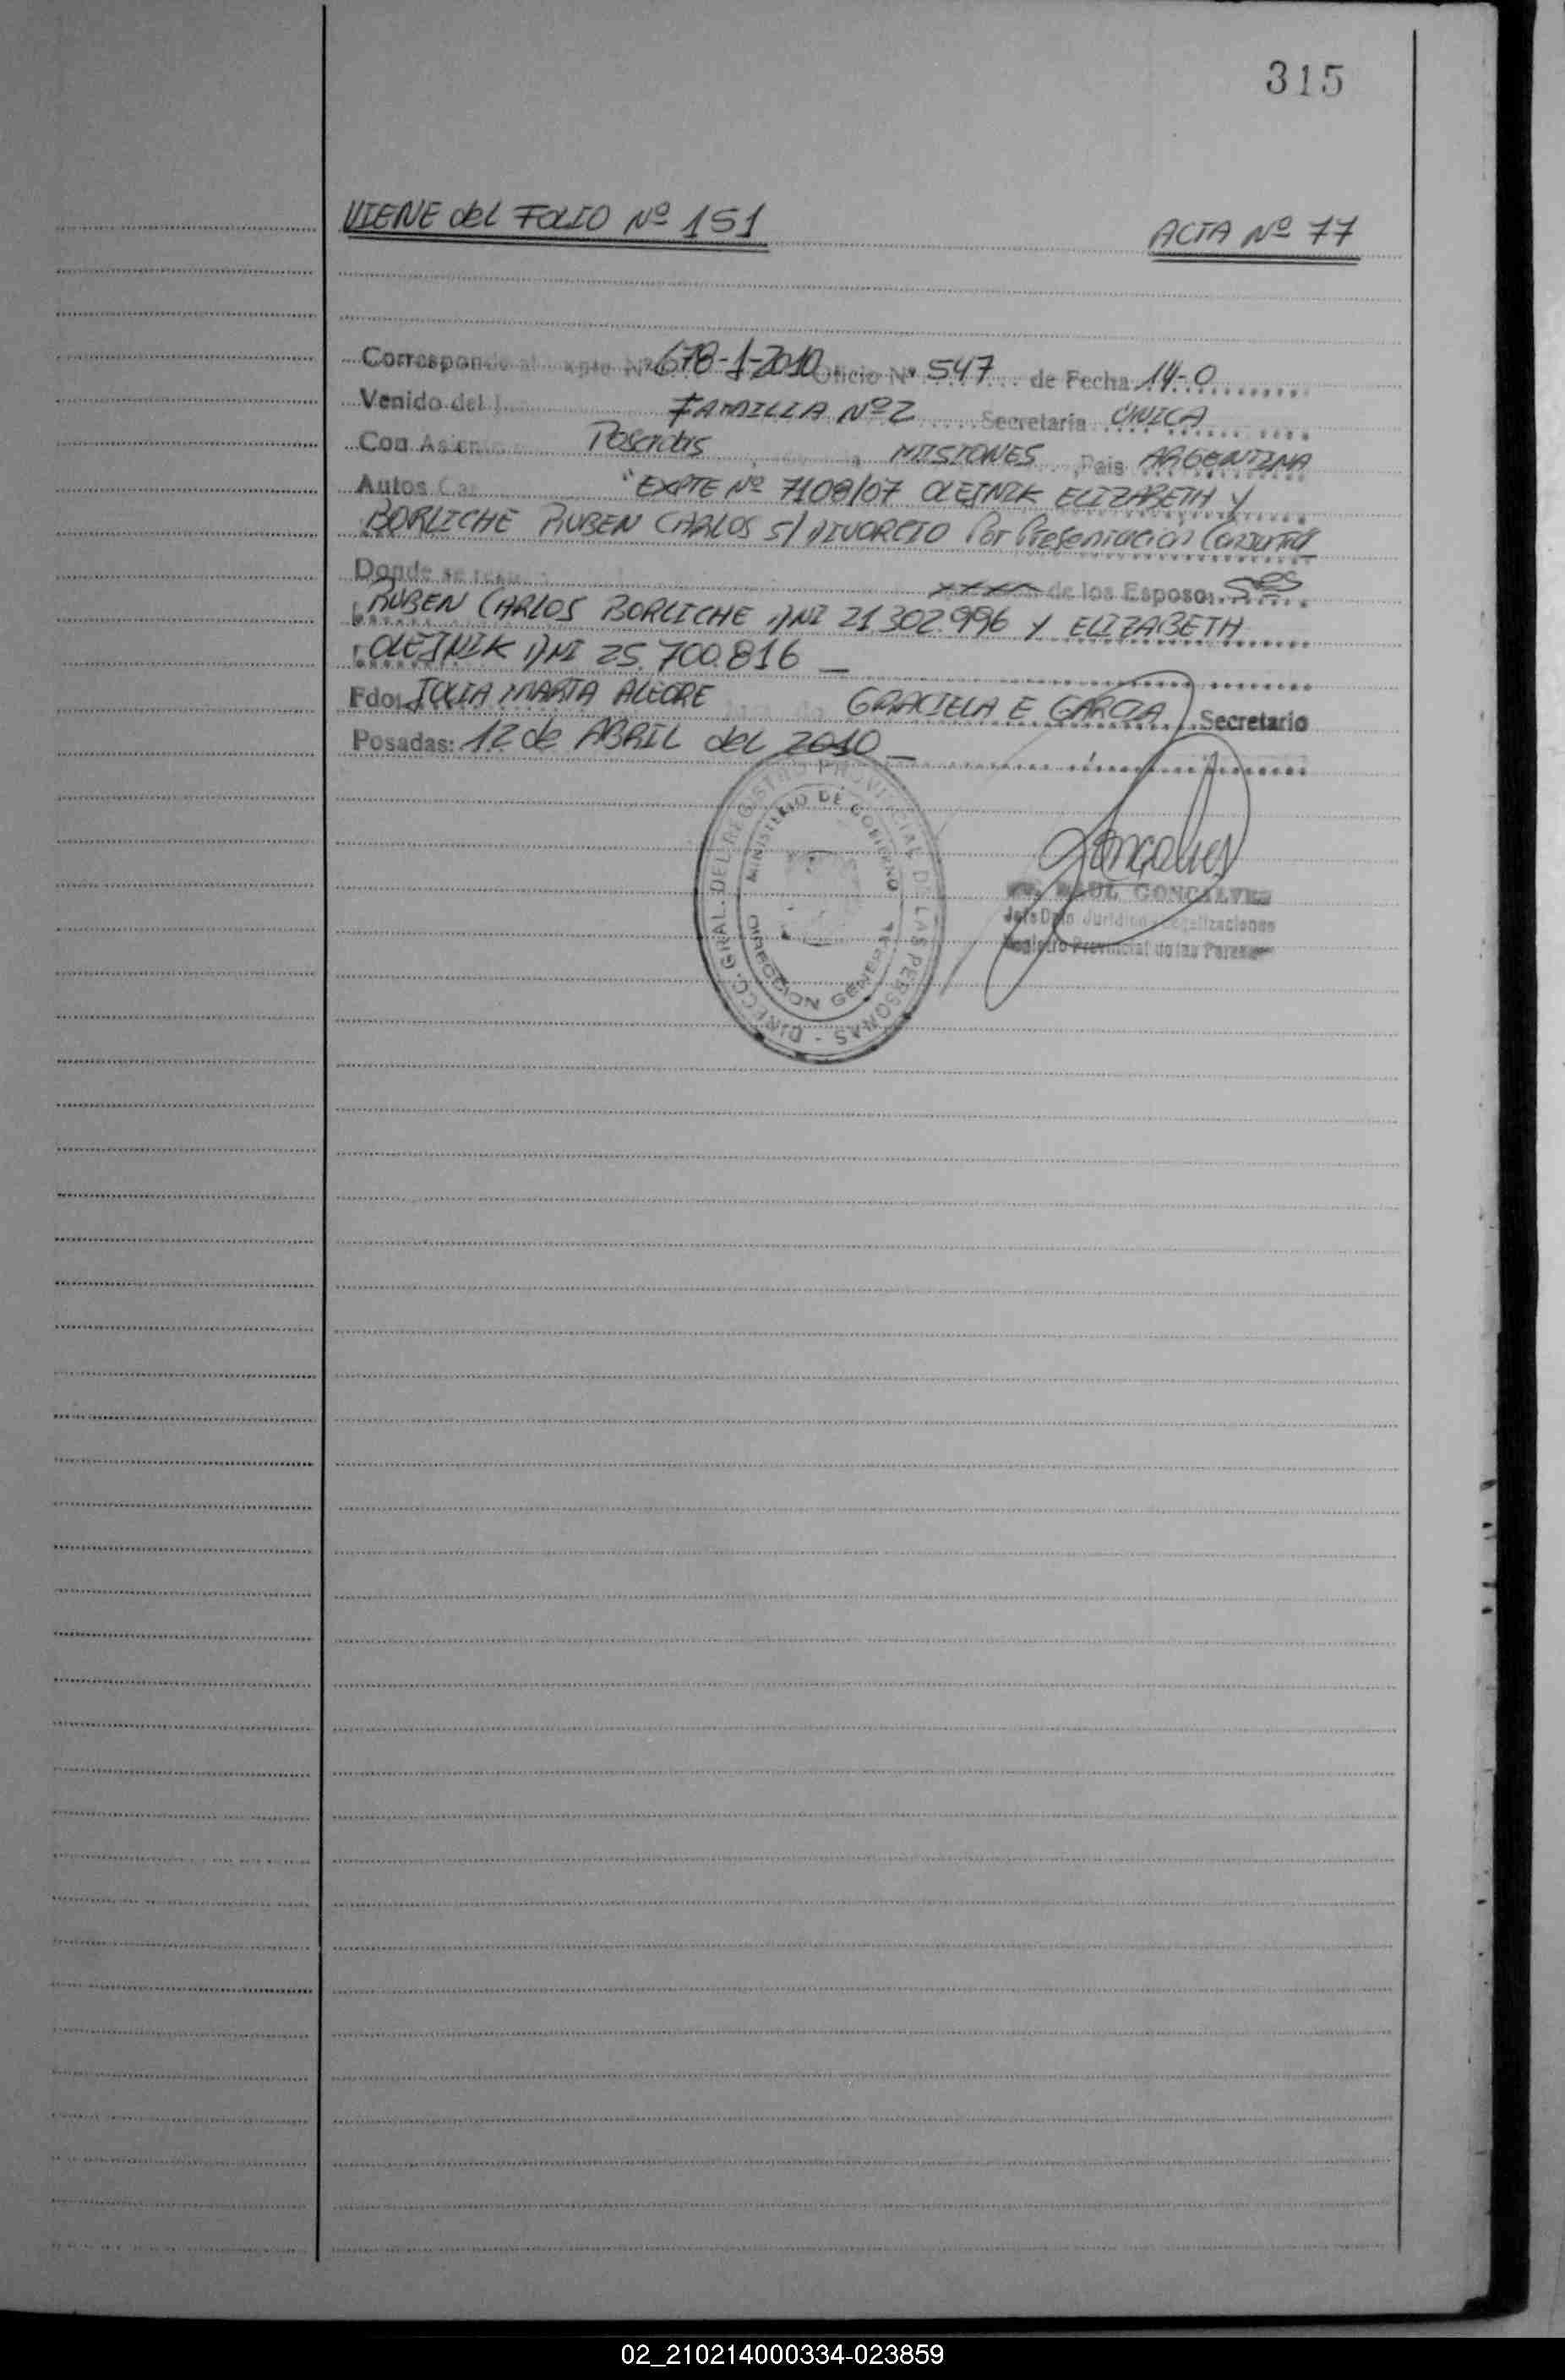 315
VIENE del FOLIO Nº 151 ACTA Nº 77
Corresponde al Expte Nº 678-1-2010 Oficio Nº 547 de Fecha 14-0
Venido del FAMILIA Nº 2 Secretaria UNICA
Con Asiento Posadas MISIONES Pais ARGENTINA
Autos "EXPTE Nº 7108/07 OLEJNIK ELIZABETH Y
BORLICHE RUBEN CARLOS S/ DIVORCIO Por Presentación Conjunta
Donde se de los Esposos
RUBEN CARLOS BORLICHE DNI 21302.996 Y ELIZABETH
OLEJNIK DNI 25.700.816
Fdo: JULIA MARTA ALEGRE GRACIELA E GARCIA Secretario
Posadas: 12 de ABRIL del 2010
DIRECC. GRAL. DEL REGISTRO PROVINCIAL DE LAS PERSONAS
MINISTERIO DE GOBIERNO
DIRECCION GENERAL
RAUL GONCALVES
Jefe Dpto Juridico Legalizaciones
Registro Provincial de las Personas
02_210214000334-023859